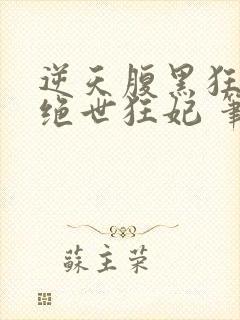 逆天腹黑狂
绝世狂妃 笔
蘇主荣